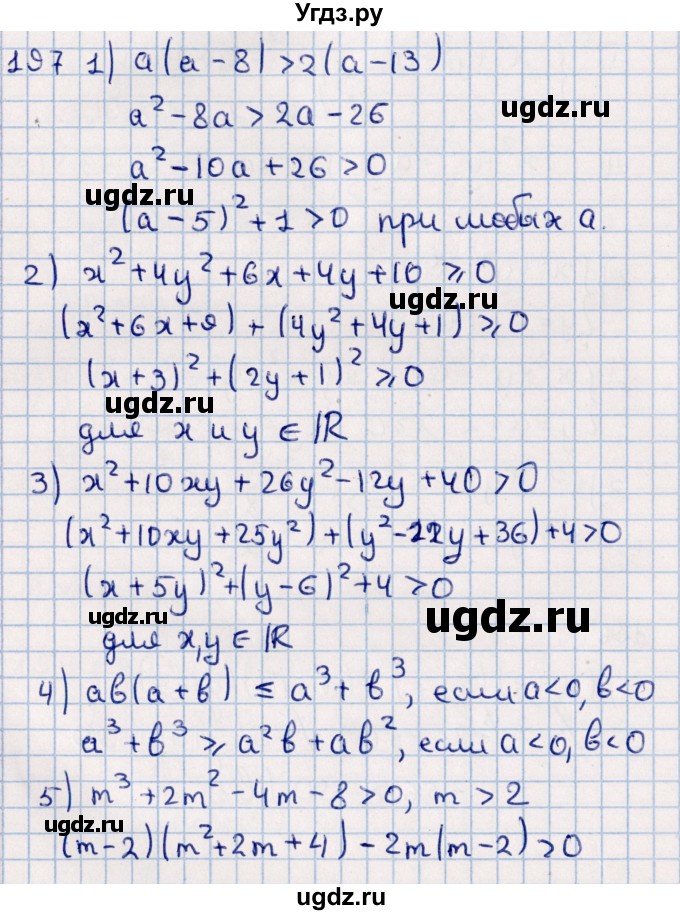 Угдз.ру
197 1) a(a-8)>2(a-13)
ugdz.ru
a²-8a>2a-26
a²-10a+26>0
ugdz.ru
(a-5)²+1>0 при любых a.
2) x²+4y²+6x+4y+10⩾0
ugdz.ru
(x²+6x+9)+(4y²+4y+1)⩾0
(x+3)²+(2y+1)²⩾0
ugdz.ru
для x и y ∈ ℝ
3) x²+10xy+26y²-12y+40>0
(x²+10xy+25y²)+(y²-22y+36)+4>0
(x+5y)²+(y-6)²+4>0
ugdz.ru
ugdz.ru
для x,y ∈ ℝ
4) ab(a+b)⩽a³+b³, если a<0, b<0
a³+b³⩾a²b+ab², если a<0, b<0
5) m³+2m²-4m-8>0, m>2
ugdz.ru
(m-2)(m²+2m+4)-2m(m-2)>0
ugdz.ru